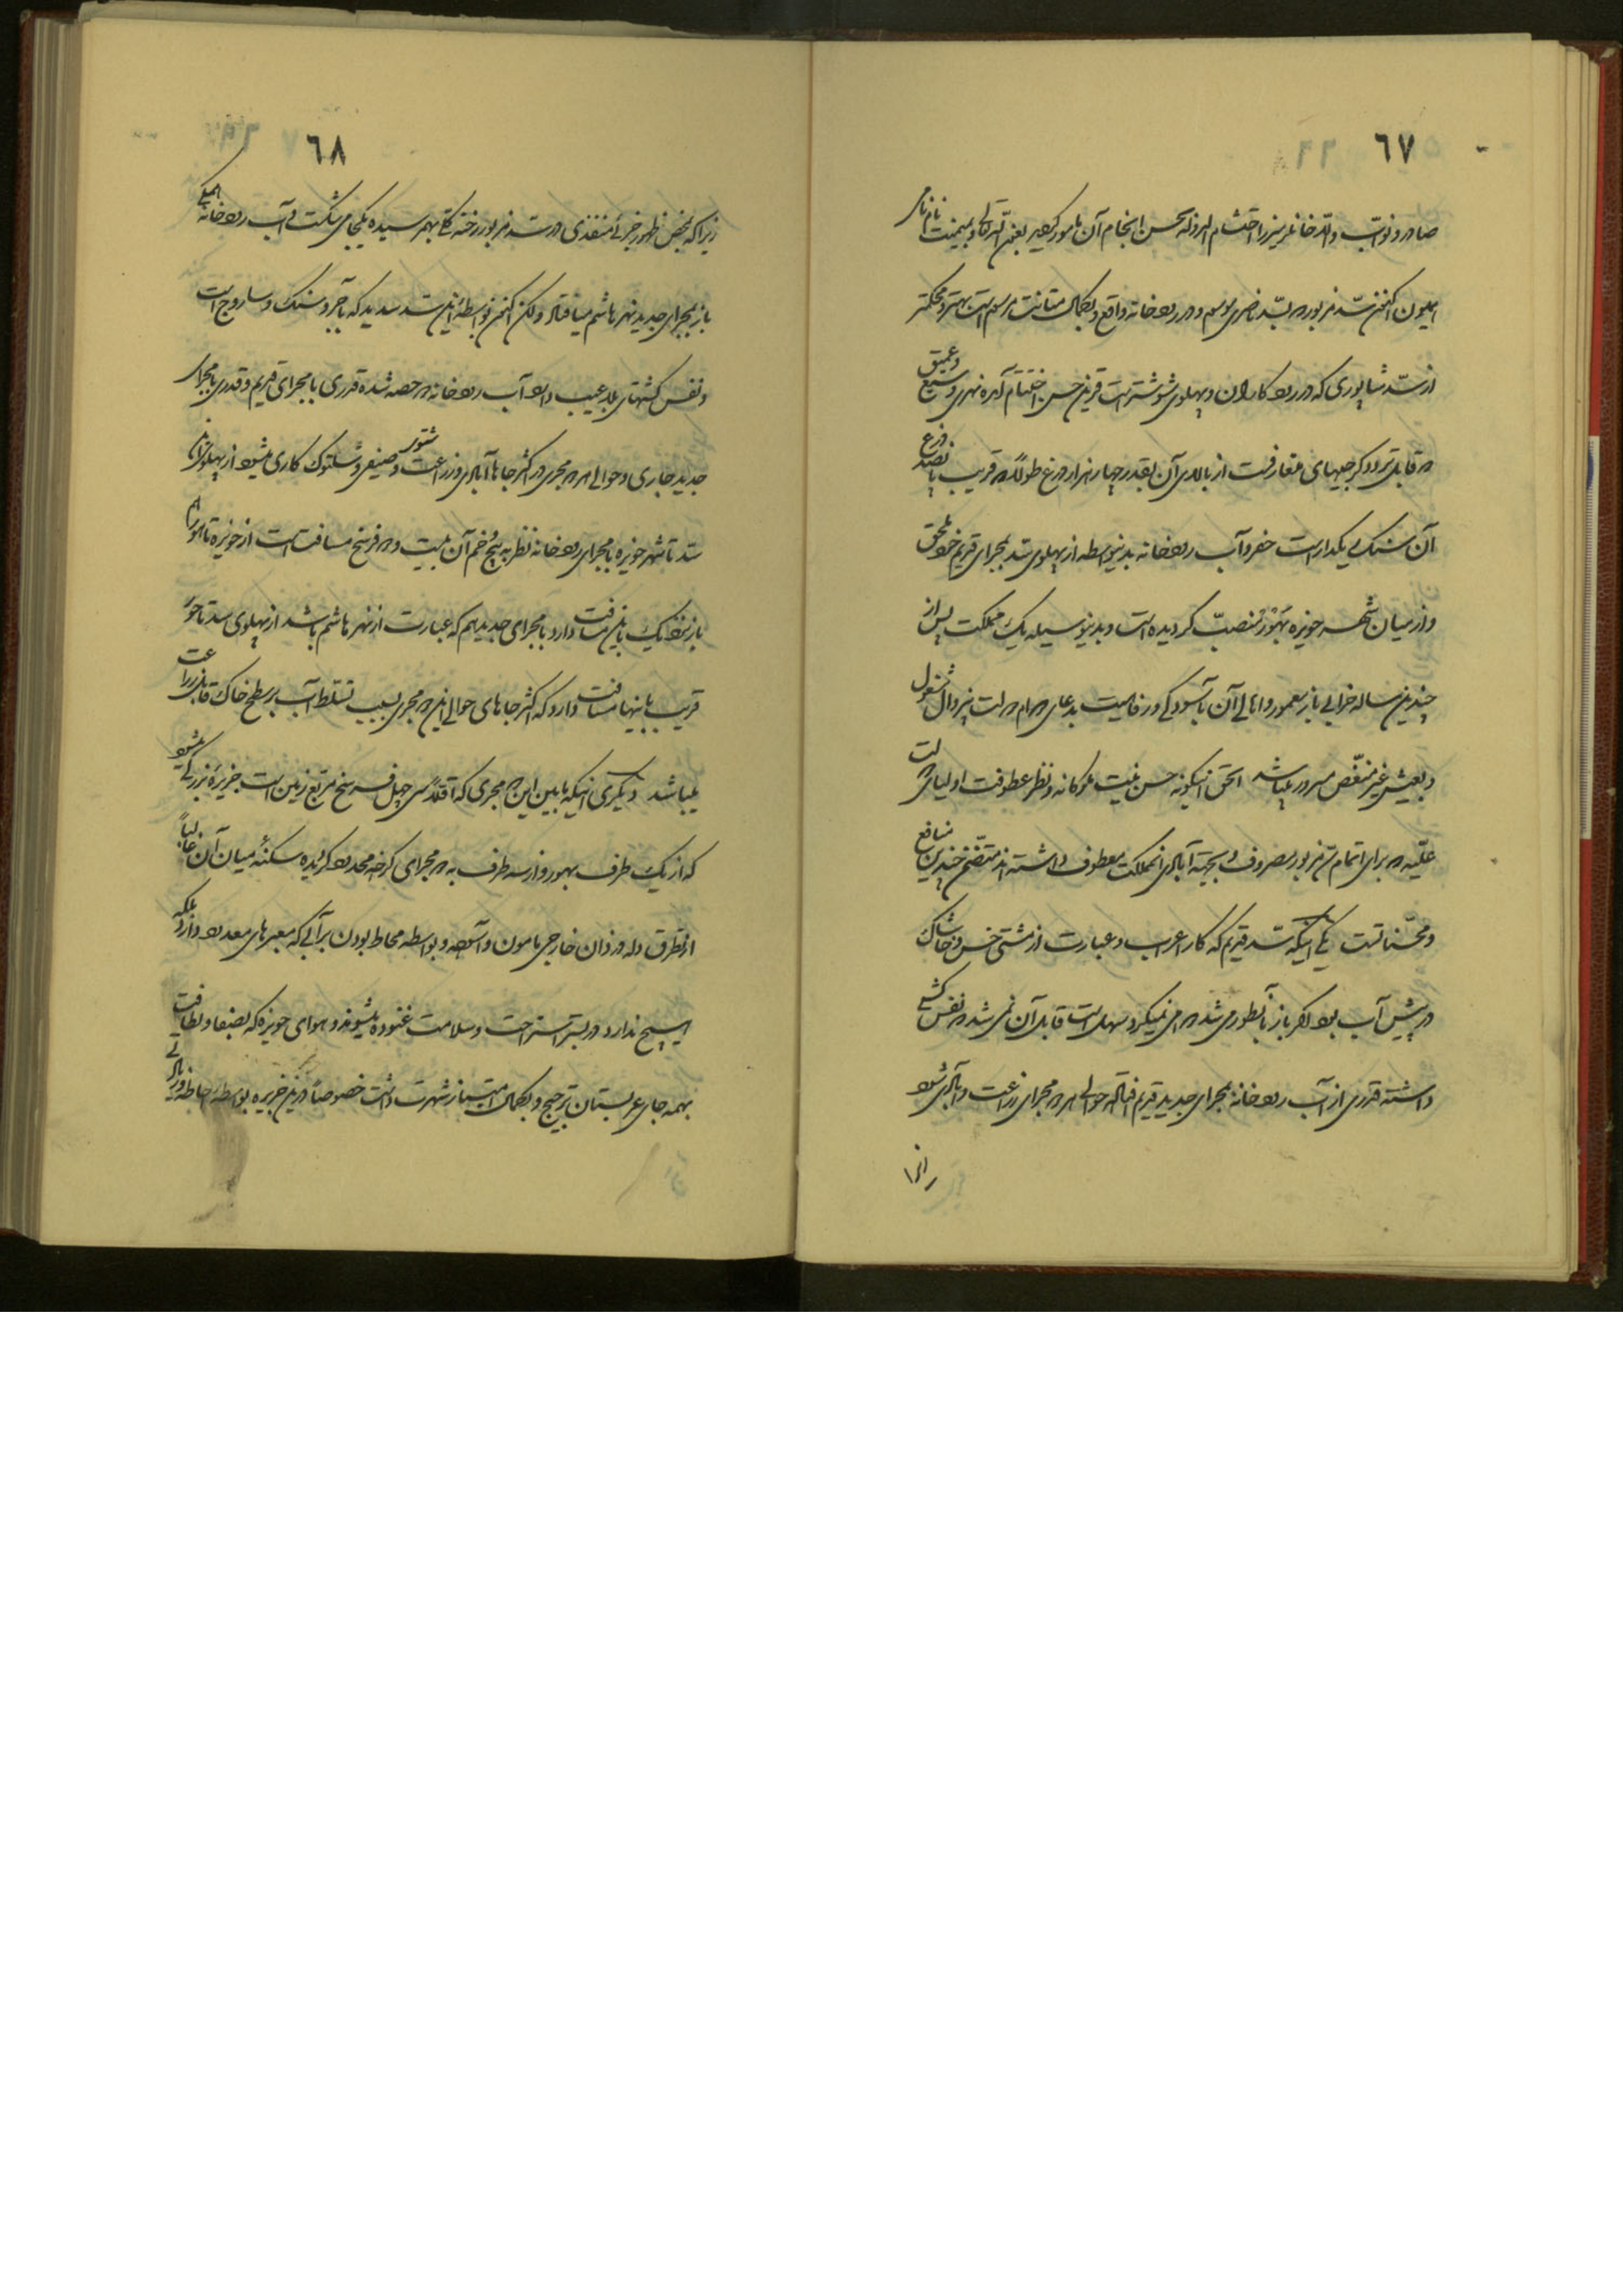 ٦٧
صادر و نواب والا خانلر میرزا احتشام الدوله بحسن انجام آن مامور گردید بعون الله تعالی و بمیمنت نام نامی
همیون اکنون سد مزبور که بسد ناصری موسوم و در رودخانه واقع و بکمال متانت مرسوم است بهتر و محکمتر
از سد شاپوری که در رود کارون و پهلوی شوشتر است قرین حسن اختتام آمده نهری وسیع و عمیق
که قابل تردد کرجیهای متعارفست از بالای آن بقدر چهار هزار ذرع طولا که قریب پانصد ذرع
آن سنگ یکدار است حفر و آب رودخانه بدینواسطه از پهلوی سد بمجرای قدیم خود ملحق
و از میان شهر حویزه بهور منصب گردیده است و بدینوسیله یک مملکت پس از
چندین ساله خرابی باز معمور و اهالی آن بآسودگی و رفاهیت بدعای دوام دولت بیزوال مشغول
و بعیش غیر منغص مسرور میباشد الحق اینگونه حسن نیت ملوکانه و نظر عطوفت اولیای دولت
علیه که برای اتمام سد مزبور مصروف و بجهة آبادی انمملکت معطوف داشته اند متضمن چندین منافع
و محسناتست یکی اینکه سد قدیم که کار اعراب و عبارت از مشتی خس و خاشاک
در پیش آب بود اگر باز بآنطور می شد دوامی نمیکرد و سهل است قابل آن نمی شد که نفس کشی
داشته قدری از آب رودخانه بمجرای جدید و قدیم افتاده حوالی هر دو مجرای زراعت و آبادی شود
زیرا
٦٨
زیرا که بمحض ظهور جزئی منفذی در سد مزبور رخنه کلی بهم رسیده یکجا می شکست و آب رودخانه همگی
باز بمجرای جدید نهر هاشم میافتاد ولکن اکنون بواسطه این سد سدید که بآجر و سنگ و ساروج است
و نفس کشهای بلا عیب دارد آب رودخانه دو حصه شده قدری با مجرای قدیم و قدری با مجرای
جدید جاری و حوالی هر دو مجری در اکثر جاها آبادی و زراعت شتوی و صیفی و شلتوک کاری میشود از پهلوی این
سد تا شهر حویزه با مجرای رودخانه نظر به پیچ و خم آن بیست و دو فرسخ مسافت است از حویزه تا هور
باز نزدیک باین مسافت دارد با مجرای جدید هم که عبارت از نهر هاشم باشد از پهلوی سد تا هور
قریب باینها مسافت دارد که اکثر جاهای حوالی این دو مجری بسبب تسلط آب بر سطح خاک قابل زراعت
میباشد دیگری اینکه مابین این دو مجری که اقلا سی چهل فرسخ مربع زمین است جزیره بزرگی میشود
که از یک طرف بهور و از سه طرف به دو مجرای کرخه محدود گردیده سکنه میان آن غالبا
از تطرق دله دزدان خارجی مامون و آسوده و بواسطه محاط بودن بر آبی که معبرهای معدود دارد بلکه
هیچ ندارد در بستر استراحت و سلامت غنوده میشوند و هوای حویزه که بصفا و لطافت
بهمه جای عربستان ترجیح و بکمال امتیاز شهرت داشت خصوصا در این جزیره بواسطه احاطه دریای